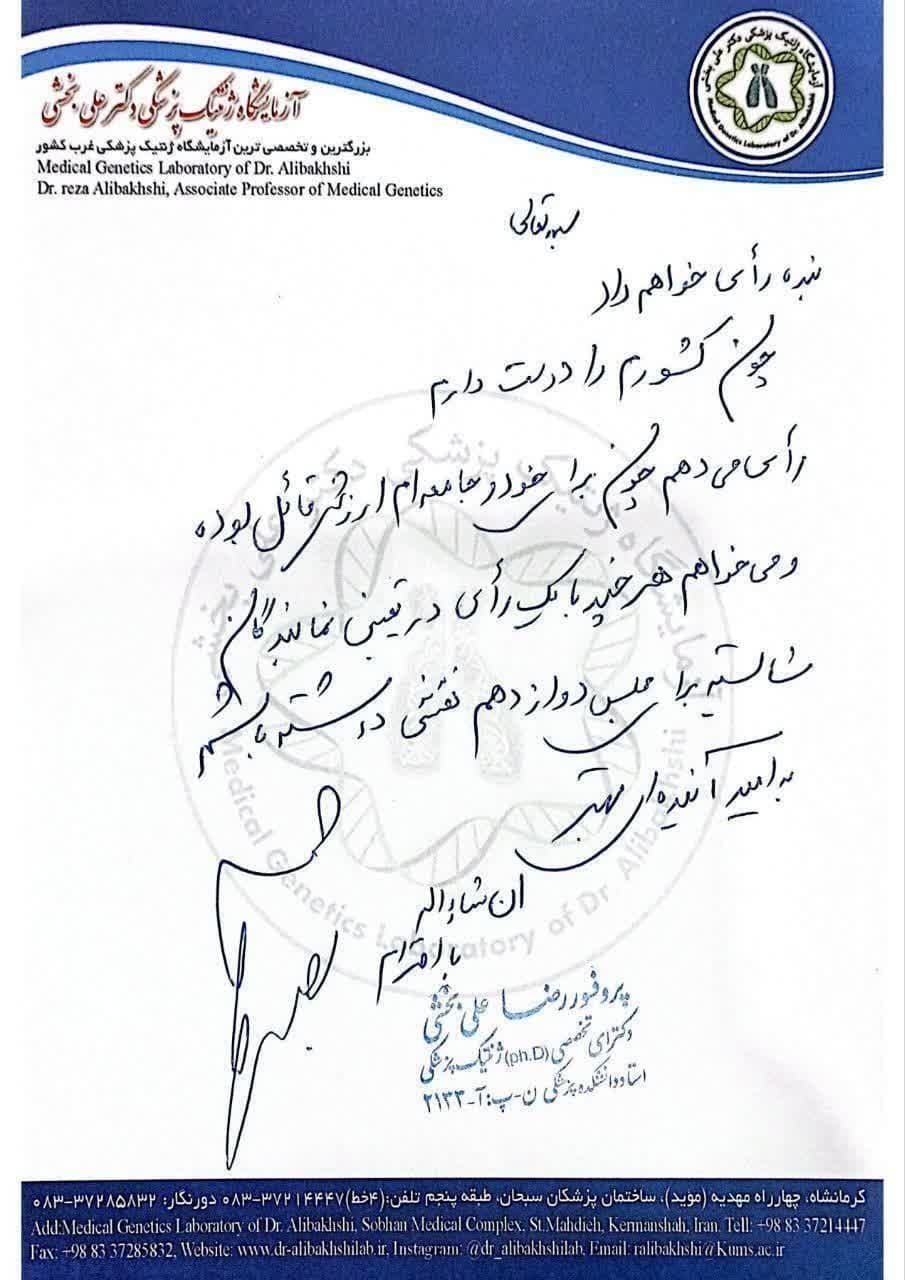 آزمایشگاه ژنتیک پزشکی دکتر علی بخشی
بزرگترین و تخصصی ترین آزمایشگاه ژنتیک پزشکی غرب کشور
Medical Genetics Laboratory of Dr. Alibakhshi
Dr. reza Alibakhshi, Associate Professor of Medical Genetics
آزمایشگاه ژنتیک پزشکی دکتر علی بخشی
Medical Genetics Laboratory of Dr. Alibakhshi
بسمه تعالی
بنده رأی خواهم داد
چون کشورم را دوست دارم
رأی می دهم چون برای خود و جامعه ام ارزش قائل بوده
و می خواهم هر چند با یک رأی در تعیین نمایندگان
شایسته برای مجلس دوازدهم نقشی داشته باشم
به امید آینده ای بهتر
ان شاء الله
با احترام
پروفسور رضا علی بخشی
دکترای تخصصی (ph.D) ژنتیک پزشکی
استاد دانشکده پزشکی ن-پ: آ-۲۱۳۳
آزمایشگاه ژنتیک پزشکی دکتر علی بخشی
Medical Genetics Laboratory of Dr. Alibakhshi
کرمانشاه، چهارراه مهدیه (مؤید)، ساختمان پزشکان سبحان، طبقه پنجم تلفن:(۴خط)۳۷۲۱۴۴۴۷-۰۸۳ دورنگار: ۳۷۲۸۵۸۳۲-۰۸۳
Add:Medical Genetics Laboratory of Dr. Alibakhshi, Sobhan Medical Complex, St.Mahdieh, Kermanshah, Iran. Tell: +98 83 37214447
Fax: +98 83 37285832, Website: www.dr-alibakhshilab.ir, Instagram: @dr_alibakhshilab, Email: ralibakhshi@Kums.ac.ir